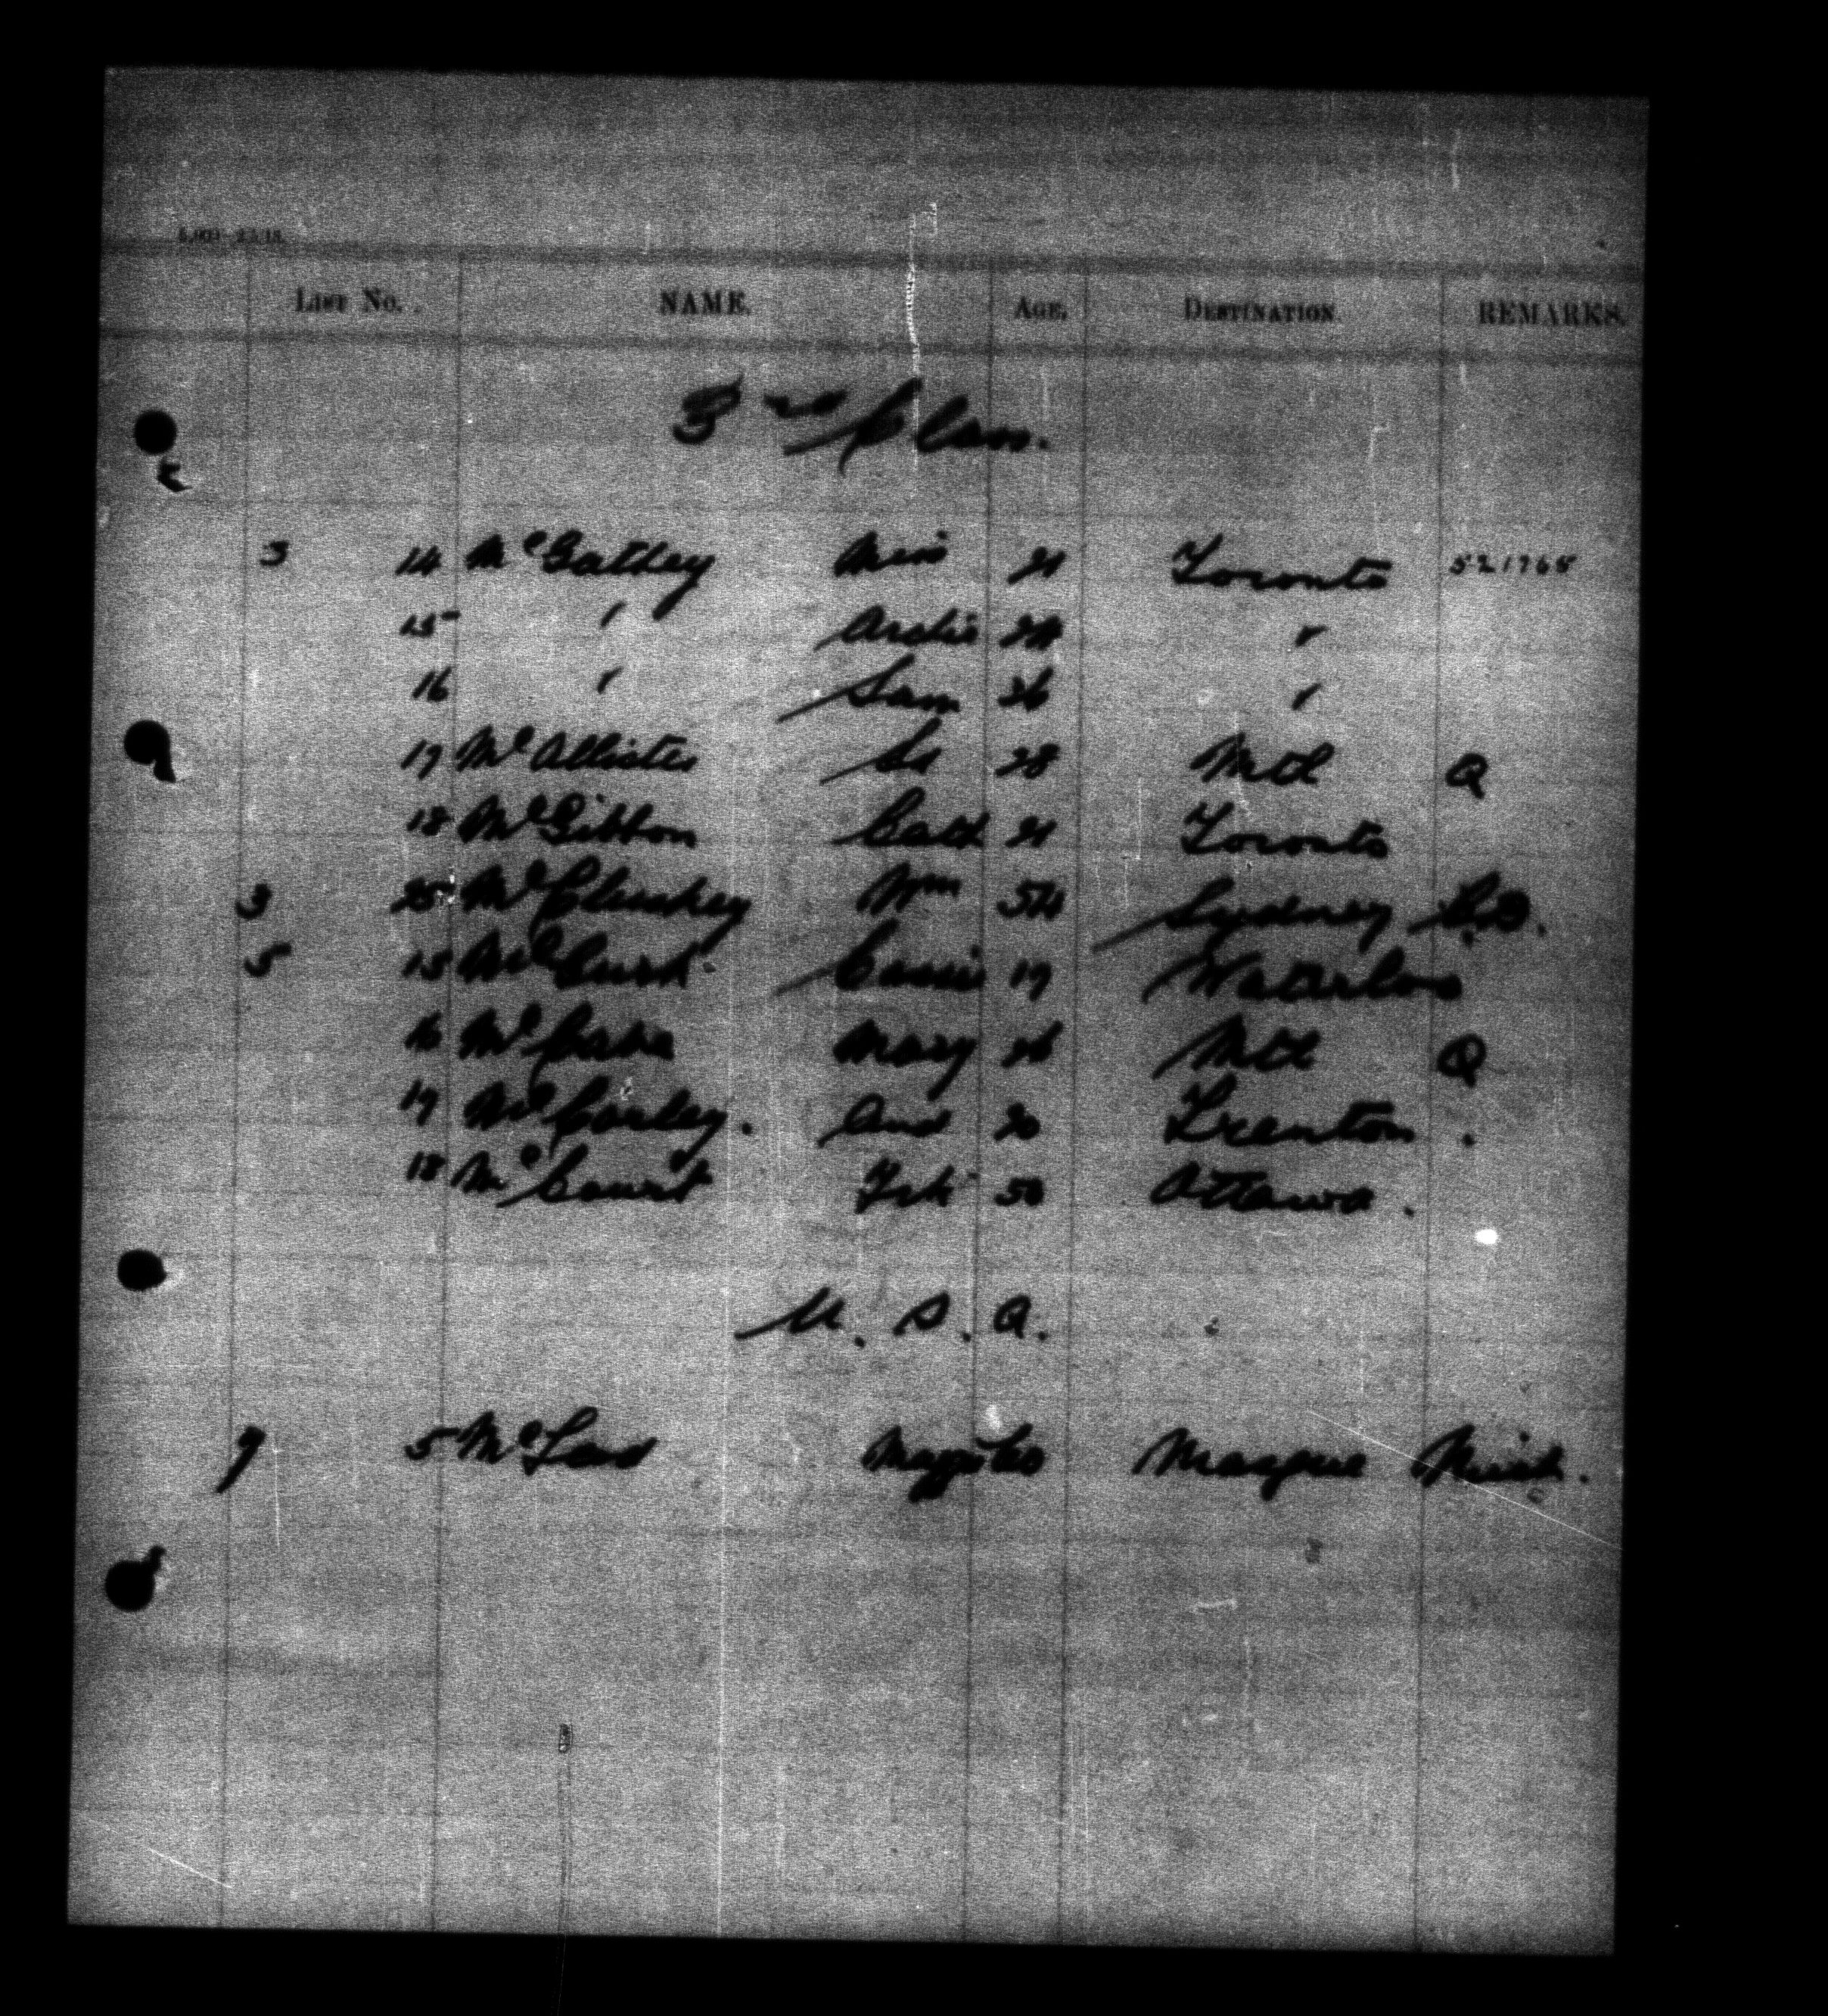 LIST No. NAME. AGE. DESTINATION. REMARKS.
3rd Class.
3 14 McGathey 21 Toronto 521765
15 " Archie "
16 " Sam 26 "
17 McAllister 28 Mtl Q
18 McGibbon Cath 21 Toronto
3 25 McCluskey Wm 54 Sydney C.B.
5 15 McCurk Cassie 19 Waterloo
16 McCabe Mary 26 Mtl Q
17 McCorley. And 20 Trenton.
18 McCourt 50 Ottawa.
U. S. A.
9 5 Maggie Mich.